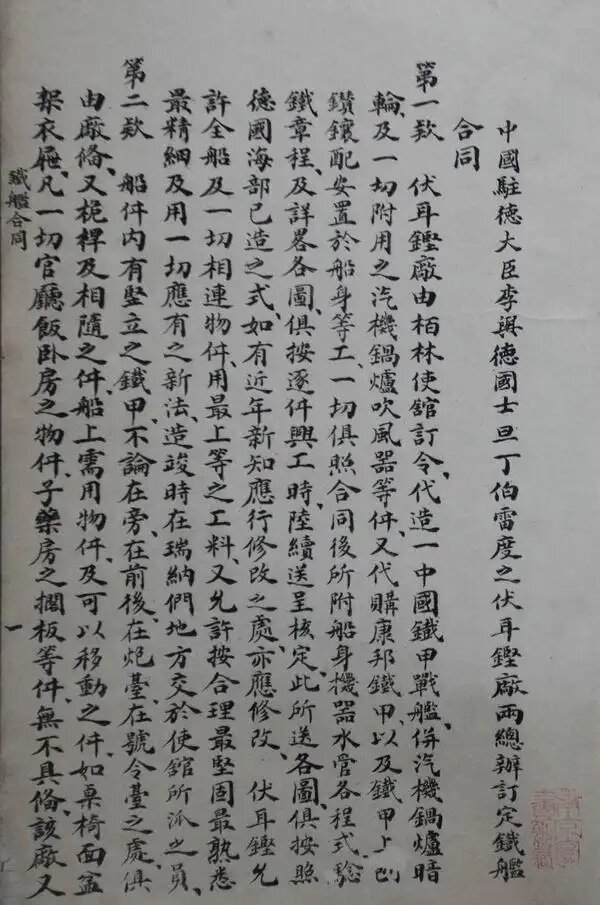 中國駐德大臣李與德國士旦丁伯雷度之伏耳鏗廠兩總辦訂定鐵艦
合同
第一欵 伏耳鏗廠由栢林使舘訂令、代造一中國鐵甲戰艦、併汽機鍋爐暗
輪、及一切附用之汽機鍋爐吹風器等件、又代購康邦鐵甲、以及鐵甲上刨
鑽鑲配安置於船身等工、一切俱照合同後所附船身機器水管各程式、驗
鐵章程、及詳畧各圖、俱按逐件興工時、陸續送呈核定、此所送各圖、俱按照
德國海部已造之式、如有近年新知應行修改之處、亦應修改、 伏耳鏗允
許全船及一切相連物件、用最上等之工料、又允許按合理最堅固最熟悉
最精細及用一切應有之新法、造竣時在瑞納們地方交於使舘所派之員、
第二欵 船件內有竪立之鐵甲、不論在旁、在前後、在炮臺、在號令臺之處、俱
由廠俻、又桅桿及相隨之件、船上需用物件、及可以移動之件、如桌椅面盆
架衣櫥、凡一切官廳飯卧房之物件、子藥房之擱板等件、無不具俻、該廠又
鐵艦合同
一